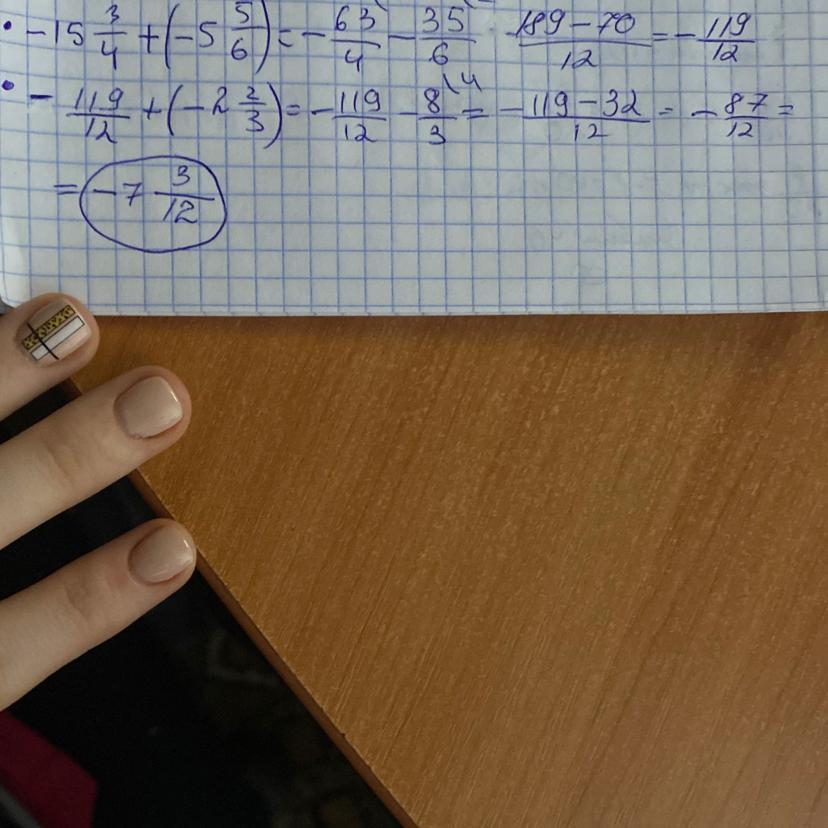 • -15 3/4 + (-5 5/6) = -63/4 - 35/6 (189-70)/12 = -119/12
• -119/12 + (-2 2/3) = -119/12 - 8/3 \4 = (-119-32)/12 = -87/12 =
= -7 3/12